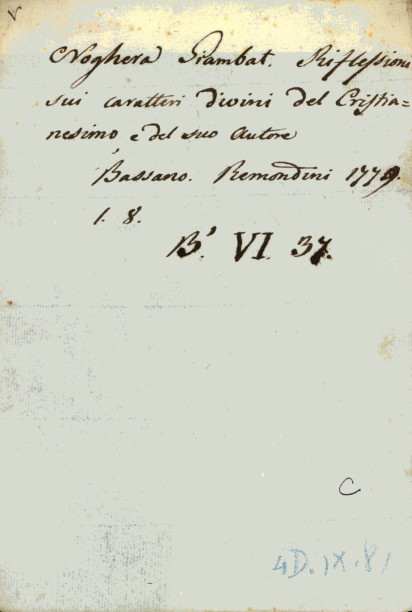 Noghera Giambat. Riflessioni
sui caratteri divini del Cristia=
nesimo e del suo Autore
Bassano. Remondini 1779
1. 8.
B' VI. 37.
C
4D.IX.81